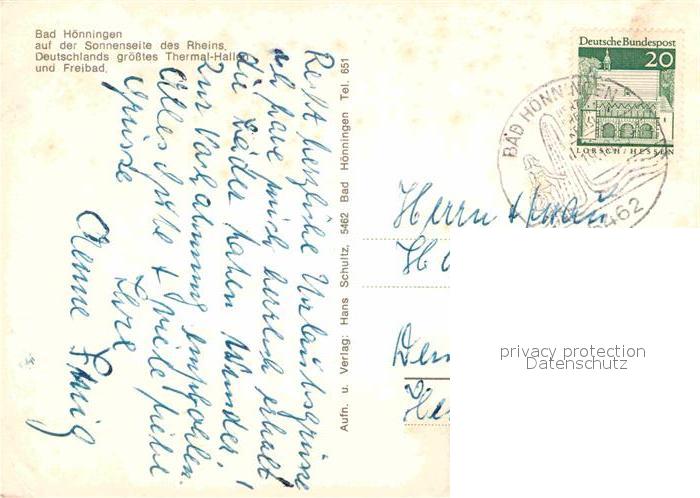 Bad Hönningen
auf der Sonnenseite des Rheins.
Deutschlands größtes Thermal-Hallen
und Freibad.
Recht herzliche Urlaubsgrüsse
habe mich herrlich erholt
die Bäder haben Wunder!
Zur Nachahmung empfohlen.
Alles Gute + viele liebe
Grüsse
Ihre
Aufn. u. Verlag: Hans Schultz, 5462 Bad Hönningen Tel. 651
Deutsche Bundespost
20
LORSCH / HESSEN
BAD HÖNNINGEN
5462
Herrn +
privacy protection
Datenschutz